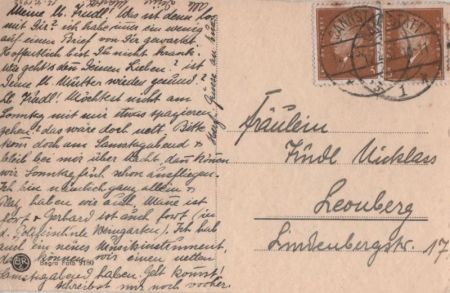 Meine lb. Friedl! Was ist denn los
mit Dir? ich habe immer ein wenig
auf einen Brief von Dir gewartet
Hoffentlich bist Du nicht krank.
wie geht's den Deinen Lieben? ist
Deine lb. Mutter wieder gesund?
Friedl! Möchtest nicht am
Sonntag mit mir etwas spazieren
gehen? das wäre doch nett. Bitte
kom doch am Samstagabend &
bleib bei mir über Nacht, dan können
wir Sonntag früh schon ausfliegen.
Ich bin nämlich ganz allein &
Platz haben wir auch. Mane ist
fort & Gerhard ist auch fort (in
d. Weingarten). Ich hab
auch ein neues Musikinstrument,
können wir einen netten
Samstagabend haben. Gelt kommst,
schreibst mir noch vorher
CANNSTATT
1
Fräulein
Friedl Nicklass
Leonberg
Lindenbergstr. 17
Foto 9190